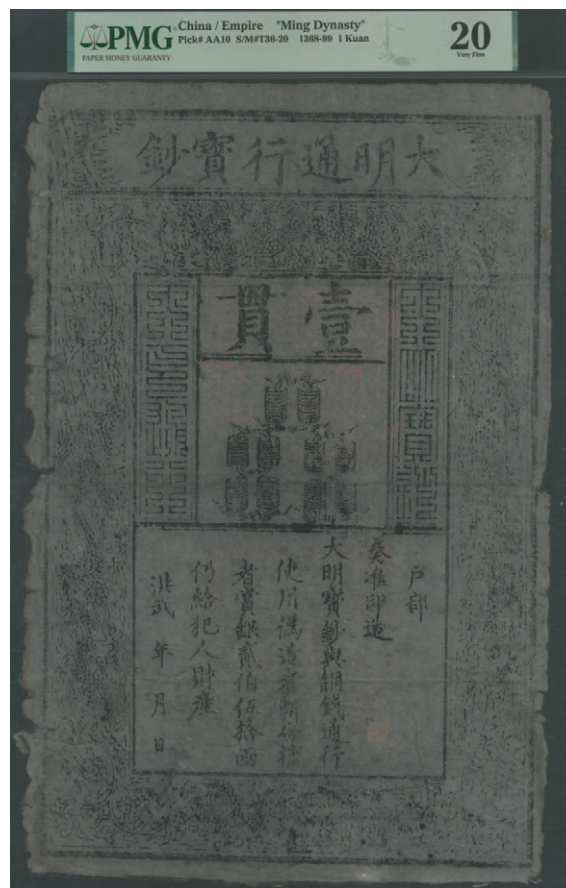 PMG
PAPER MONEY GUARANTY
China / Empire "Ming Dynasty"
Pick# AA10 S/M#T36-20 1368-99 1 Kuan
20
Very Fine
大明通行寶鈔
壹貫
戶部
奏准印造
大明寶鈔與銅錢通行
使用偽造者斬告捕
者賞銀貳伯伍拾兩
仍給犯人財產
洪武 年 月 日